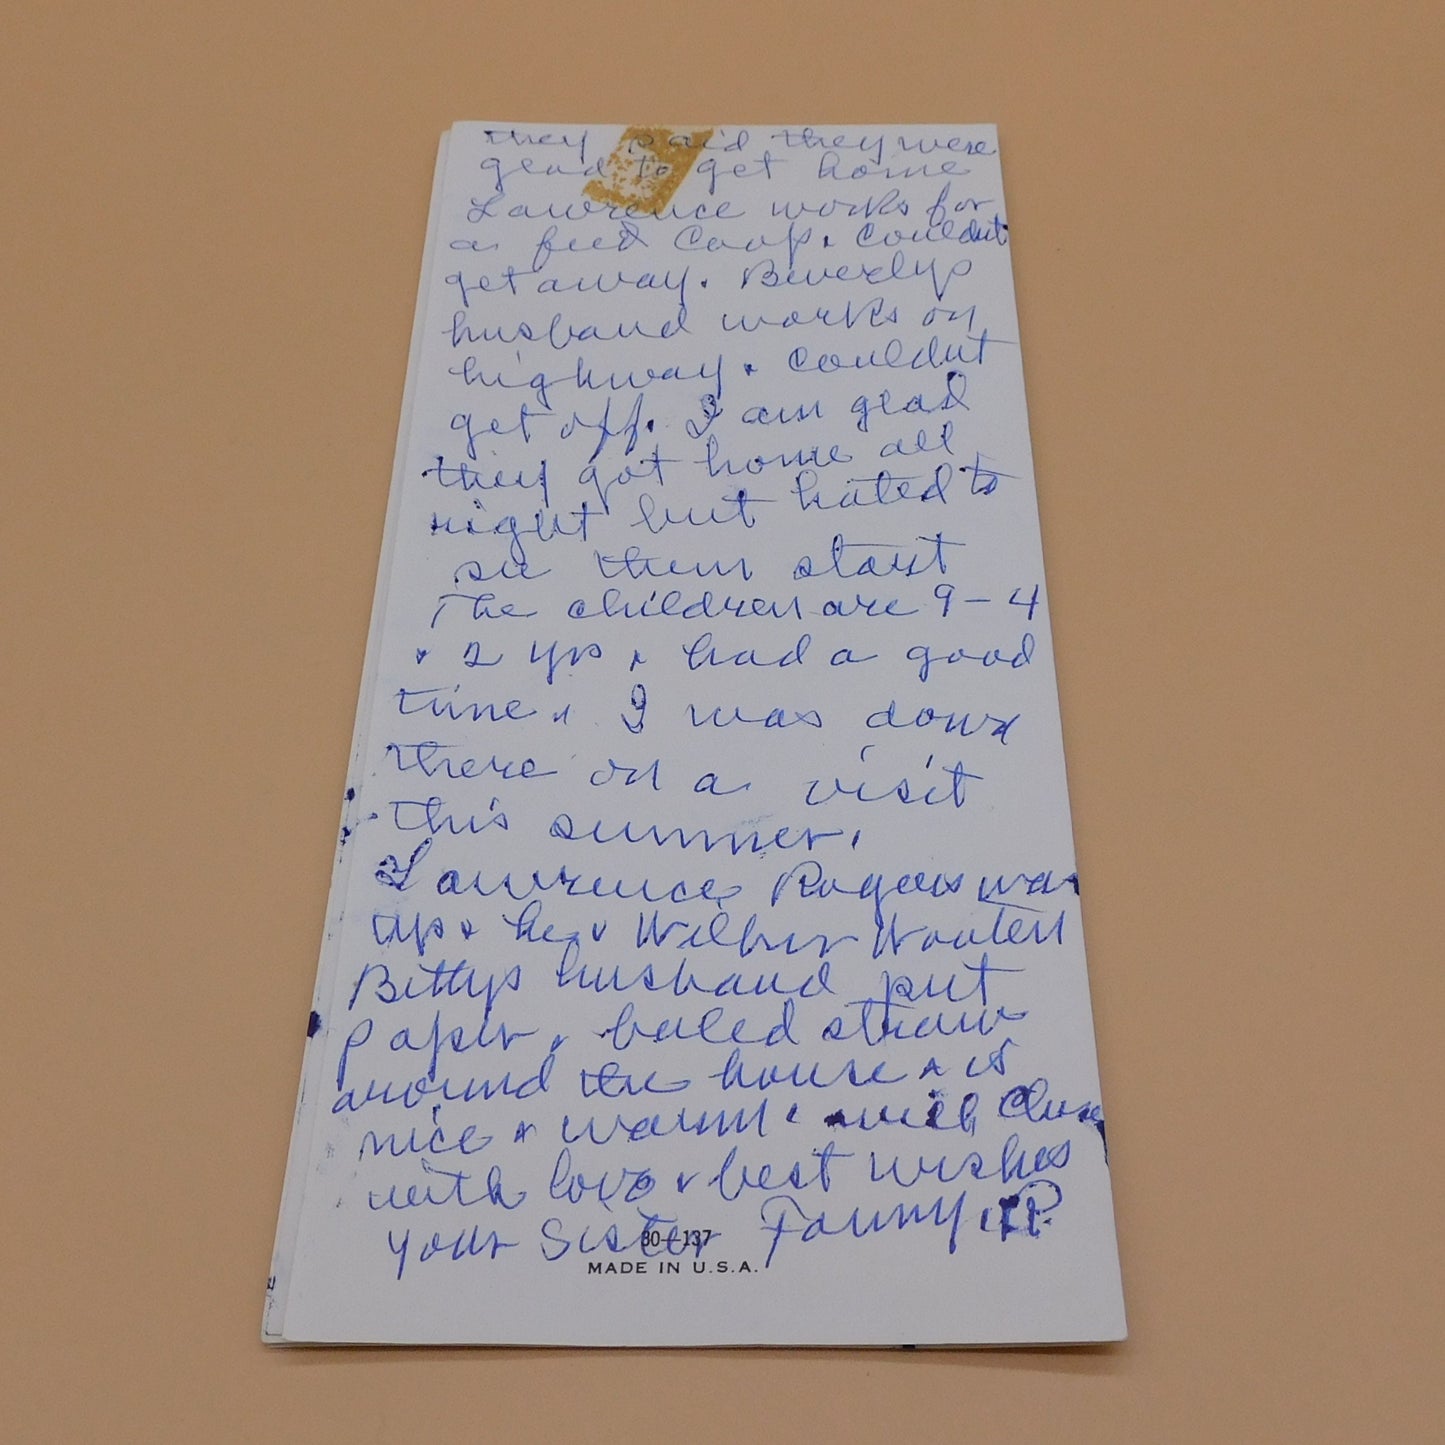 they said they were
glad to get home
Lawrence works for
a feed Coop. & Couldnt
get away. Beverlys
husband works on
highway & Couldnt
get off. I am glad
they got home all
right but hated to
see them start
The children are 9 - 4
& 2 yrs & had a good
time. I was down
there on a visit
this summer.
Lawrence Rogers was
up & he & Wilbur Wooten
Bettys husband put
paper & baled straw
around the house & is
nice & warm. will Close
with love & best wishes
your Sister Fanny. P.
30-137
MADE IN U.S.A.